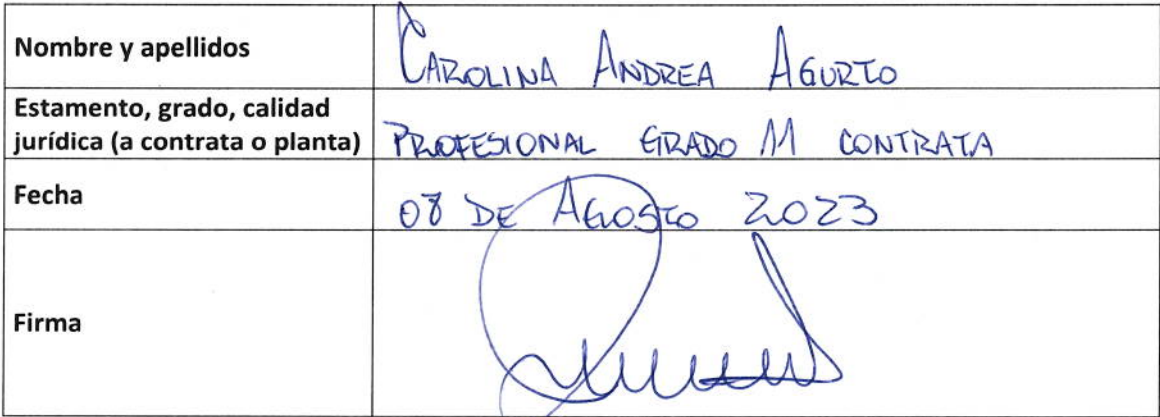 Nombre y apellidos
CAROLINA ANDREA AGURTO
Estamento, grado, calidad
jurídica (a contrata o planta)
PROFESIONAL GRADO 11 CONTRATA
Fecha
08 DE AGOSTO 2023
Firma